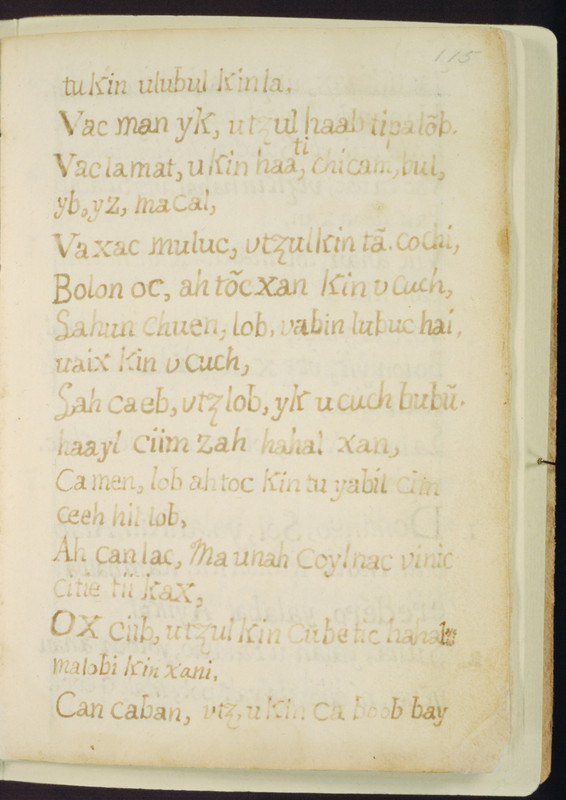 115
tu kin ulubul kin la.
Vac man yk, utzul haab tipalõb.
Vac lamat, u kin haa, ti chicam, bul,
yb, yz, macal,
Vaxac muluc, vtzul kin tã. cochi,
Bolon oc, ah tõc xan kin v cuch,
Lahun chuen, lob, vabin lubuc hai,
uaix kin v cuch,
Lah caeb, vtz lob, yk u cuch bubũ.
haayl ciim zah hahal xan,
Ca men, lob ah toc kin tu yabil cim
ceeh hil lob,
Ah can lac, Ma unah coylnac vinic
citie tii kax,
OX ciib, utzul kin cubetic hahal
malobi kin xani,
Can caban, vtz, u kin ca boob bay